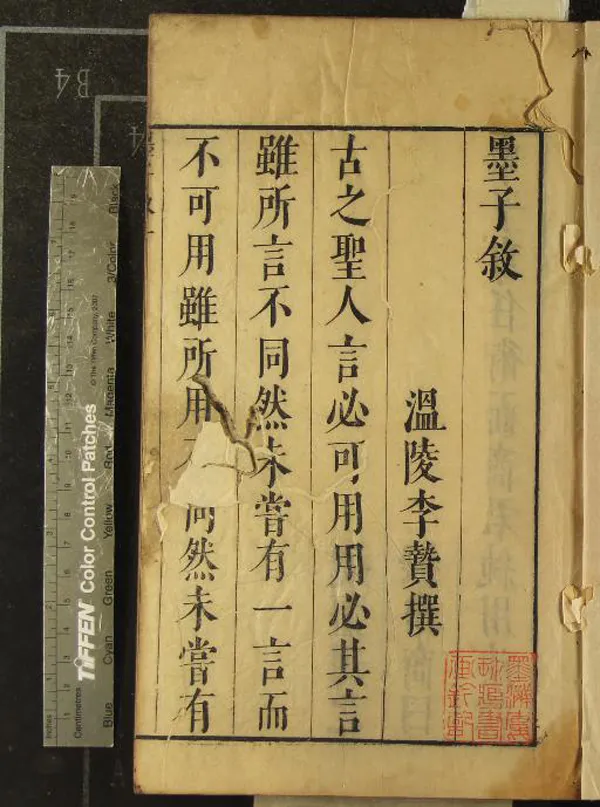 墨子敘
溫陵李贄撰
古之聖人言必可用用必其言
雖所言不同然未嘗有一言而
不可用雖所用不同然未嘗有
B4
TIFFEN Color Control Patches
© The Tiffen Company, 2007
Inches
Centimetres
Blue Cyan Green Yellow Red Magenta White 3/Color Black